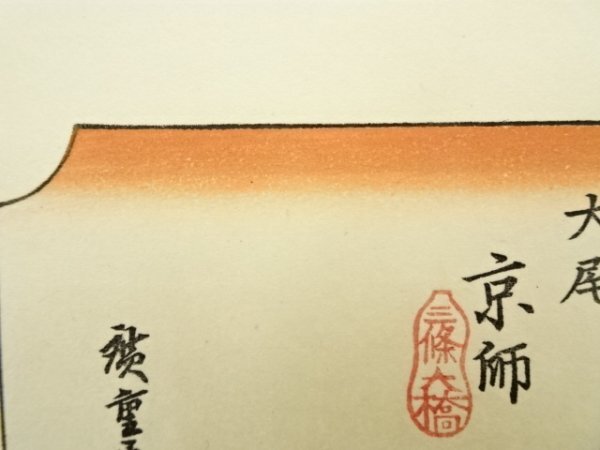 大尾
京師
三條大橋
廣重